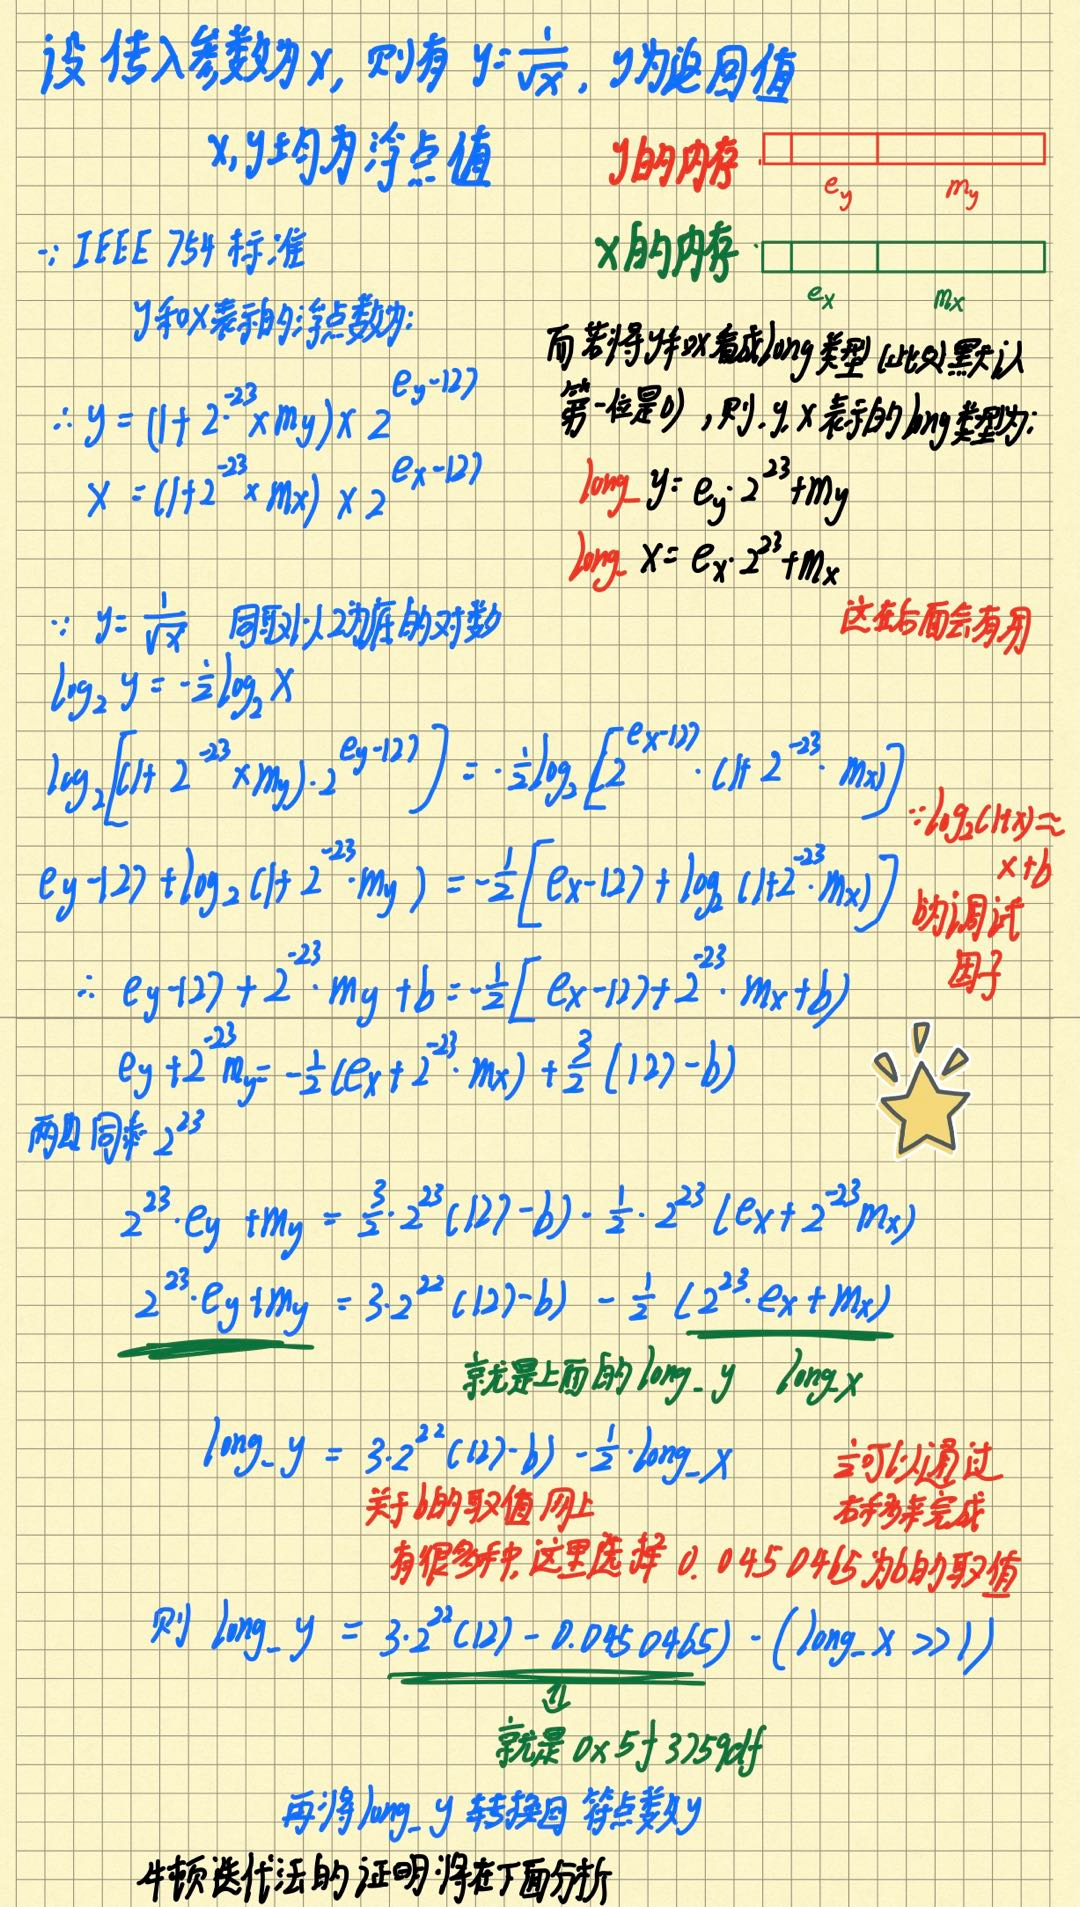 设传入参数为x, 则有 y=1/√x, y为返回值
x,y均为浮点值
y的内存
e_y m_y
x的内存
e_x m_x
∵ IEEE 754 标准
y和x表示的浮点数为:
∴ y = (1+2^-23 × m_y) × 2^(e_y-127)
x = (1+2^-23 × m_x) × 2^(e_x-127)
而若将y和x看成long类型 (此处默认
第一位是0) , 则 y, x 表示的long类型为:
long_y = e_y·2^23 + m_y
long_x = e_x·2^23 + m_x
这在后面会有用
∵ y = 1/√x 同取以2为底的对数
log_2 y = -1/2 log_2 x
log_2[(1+2^-23 × m_y)·2^(e_y-127)] = -1/2 log_2[2^(e_x-127)·(1+2^-23·m_x)]
e_y-127 + log_2(1+2^-23·m_y) = -1/2[e_x-127 + log_2(1+2^-23·m_x)]
∵ log_2(1+x) ≈
x+b
b为调试
因子
∴ e_y-127 + 2^-23·m_y + b = -1/2[e_x-127 + 2^-23·m_x + b)
e_y + 2^-23 m_y = -1/2(e_x + 2^-23·m_x) + 3/2(127-b)
两边同乘 2^23
2^23·e_y + m_y = 3/2·2^23(127-b) - 1/2·2^23(e_x + 2^-23 m_x)
2^23·e_y + m_y = 3·2^22(127-b) - 1/2(2^23·e_x + m_x)
就是上面的long_y long_x
long_y = 3·2^22(127-b) - 1/2·long_x
1/2可以通过
右移来完成
关于b的取值网上
有很多种, 这里选择 0.0450465为b的取值
则 long_y = 3·2^22(127-0.0450465) - (long_x >> 1)
⇓
就是 0x5f3759df
再将long_y转换回符点数y
牛顿迭代法的证明将在下面分析